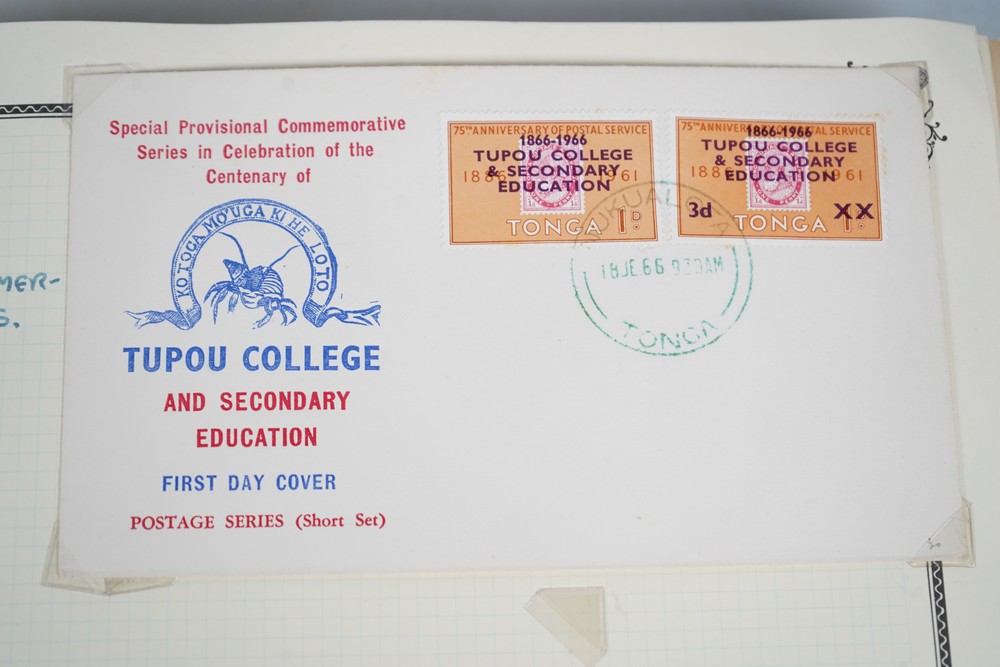 Special Provisional Commemorative
Series in Celebration of the
Centenary of
KO TOGA MO'UGA KI HE LOTO
TUPOU COLLEGE
AND SECONDARY
EDUCATION
FIRST DAY COVER
POSTAGE SERIES (Short Set)
75TH ANNIVERSARY OF POSTAL SERVICE
1866-1966
TUPOU COLLEGE
& SECONDARY
1886 1961
EDUCATION
TONGA 1D
75TH ANNIVERSARY OF POSTAL SERVICE
1866-1966
TUPOU COLLEGE
& SECONDARY
1886 1961
EDUCATION
3d XX
TONGA 1D
NUKUALOFA
18JE.66 930AM
TONGA
MER-
S.